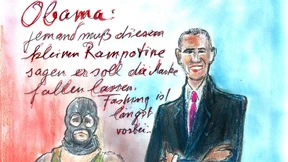 Obama:
jemand muß diesem
kleinen Rampotine
sagen er soll die Maske
fallen lassen.
Fashing ist
längst
vorbei..